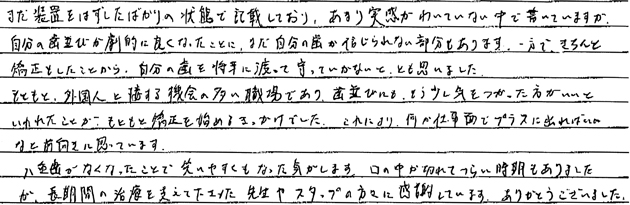 まだ装置をはずしたばかりの状態で記載しており、あまり実感がわいていない中で書いていますが、
自分の歯並びが劇的に良くなったことに、まだ自分の歯が信じられない部分もあります。一方で、きちんと
矯正をしたことから、自分の歯を将来に渡って守っていかないと、とも思いました。
もともと、外国人と接する機会の多い職場であり、歯並びにも、もう少し気をつかった方がいいと
いわれたことが、もともと矯正を始めるきっかけでした。これにより、何か仕事面でプラスに出ればいい
なと前向きに思っています。
八重歯がなくなったことで笑いやすくもなった気がします。口の中が切れてつらい時期もありました
が、長期間の治療を支えて下さった先生やスタッフの方々に感謝しています。ありがとうございました。